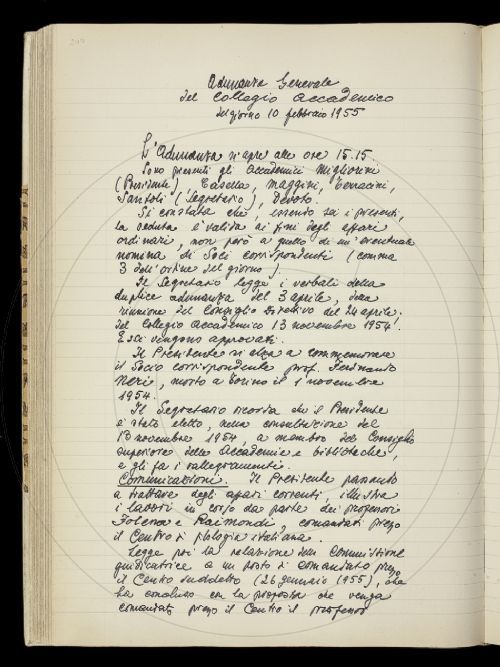 Adunanza Generale
del Collegio Accademico
del giorno 10 febbraio 1955
L'Adunanza si apre alle ore 15.15.
Sono presenti gli Accademici Migliorini
(Presidente), Casella, Maggini, Terracini,
Santoli (Segretario), Devoto.
Si constata che, essendo sei i presenti,
la seduta è valida ai fini degli affari
ordinari, non però a quello di un'eventuale
nomina di Soci corrispondenti (comma
3 dell'ordine del giorno).
Il Segretario legge i verbali della
duplice adunanza del 3 aprile, della
riunione del Consiglio Direttivo del 24 aprile,
del Collegio Accademico 13 novembre 1954.
Essi vengono approvati.
Il Presidente si alza a commemorare
il Socio corrispondente prof. Ferdinando
Neri, morto a Torino il 1 novembre
1954.
Il Segretario ricorda che il Presidente
è stato eletto, nella consultazione del
13 novembre 1954, a membro del Consiglio
Superiore delle Accademie e biblioteche,
e gli fa i rallegramenti.
Comunicazioni. Il Presidente passando
a trattare degli affari correnti, illustra
i lavori in corso da parte dei professori
Folena e Raimondi, comandati presso
il Centro di filologia italiana.
Legge poi la relazione della Commissione
giudicatrice a un posto di comandato presso
il Centro suddetto (26 gennaio 1955), che
ha concluso con la proposta che venga
comandato presso il Centro il professor